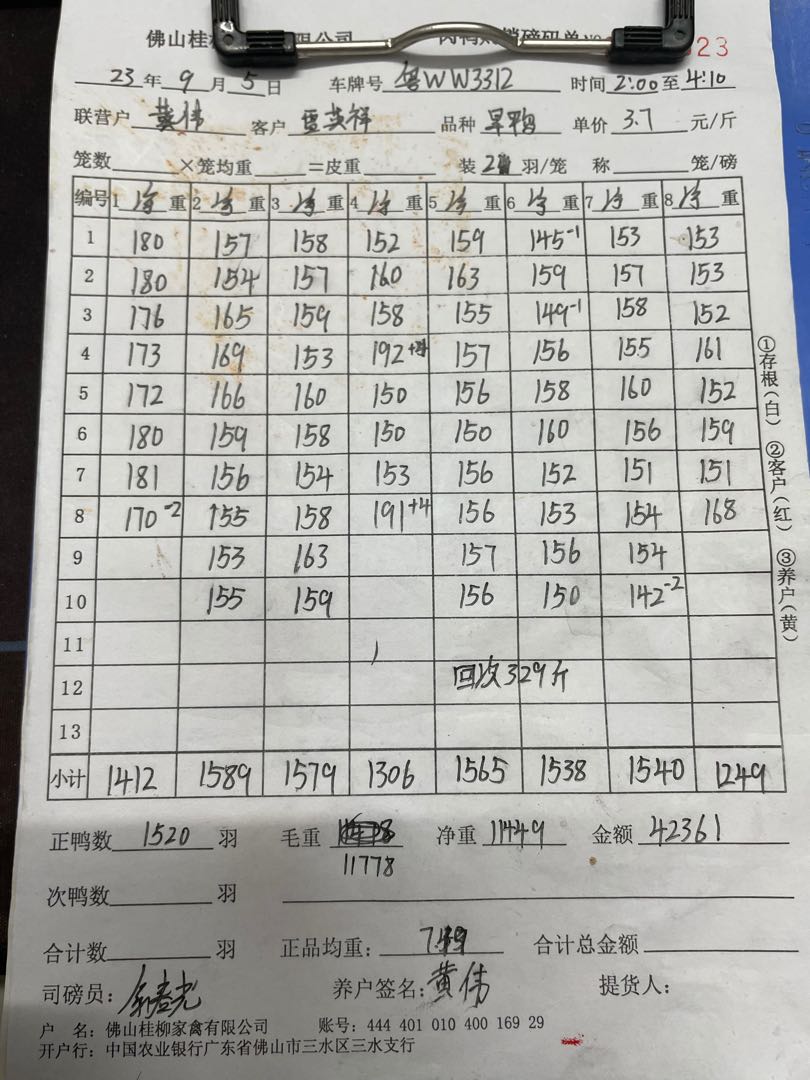 佛山桂柳 有限公司 磅码单 №
23
23 年 9 月 5 日 车牌号 粤WW3312 时间 2:00 至 4:10
联营户 黄伟 客户 贾英祥 品种 旱鸭 单价 3.7 元/斤
笼数 ×笼均重 =皮重 装 羽/笼 称 笼/磅
编号 1 净 重 2 净 重 3 净 重 4 净 重 5 净 重 6 净 重 7 净 重 8 净 重
1 180 157 158 152 159 145-1 153 153
2 180 154 157 160 163 159 157 153
3 176 165 159 158 155 149-1 158 152
4 173 169 153 192+4 157 156 155 161
5 172 166 160 150 156 158 160 152
6 180 159 158 150 150 160 156 159
7 181 156 154 153 156 152 151 151
8 170-2 155 158 191+4 156 153 154 168
9 153 163 157 156 154
10 155 159 156 150 142-2
11
12 回次329斤
13
小计 1412 1589 1579 1306 1565 1538 1540 1249
正鸭数 1520 羽 毛重 11778 净重 11449 金额 42361
次鸭数 羽
合计数 羽 正品均重: 合计总金额
司磅员: 养户签名: 黄伟 提货人:
户 名: 佛山桂柳家禽有限公司 账号: 444 401 010 400 169 29
开户行: 中国农业银行广东省佛山市三水区三水支行
①存根(白) ②客户(红) ③养户(黄)